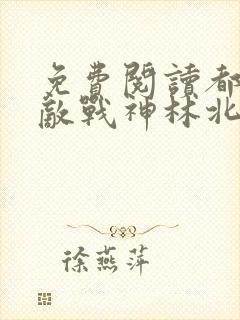 免費閱讀都
敵戰神林北
徐燕萍